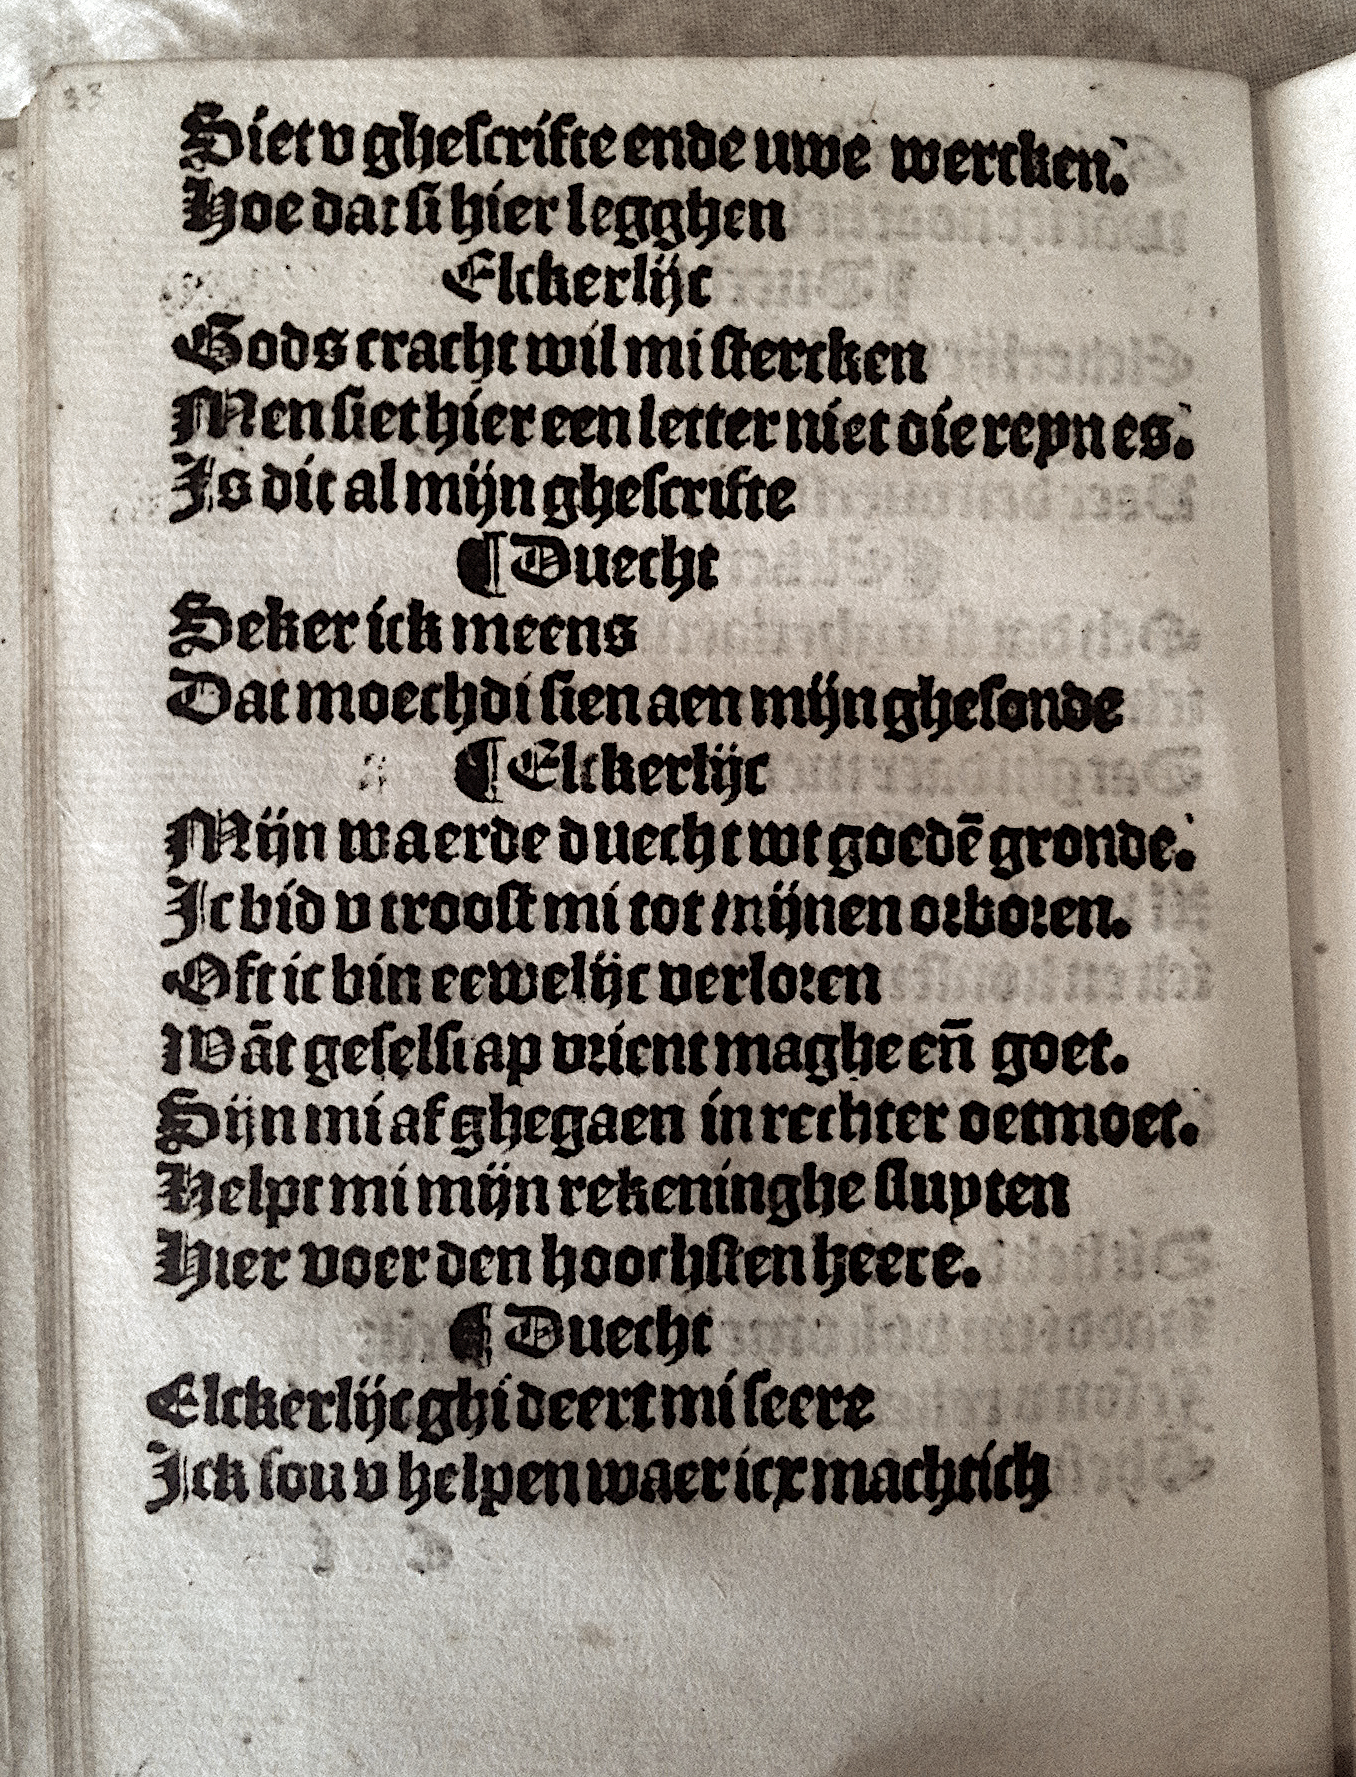 Siet v ghescrifte ende uwe wercken.
Hoe dat si hier legghen
Elckerlijc
Gods cracht wil mi stercken
Men siet hier een letter niet die reyn es.
Is dit al mijn ghescrifte
¶ Duecht
Seker ick meens
Dat moechdi sien aen mijn ghesonde
¶ Elckerlijc
Mijn waerde duecht wt goedē gronde.
Ic bid v troost mi tot mijnen orboren.
Oft ic bin eewelijc verloren
Wāt geselsiap vrient maghe eñ goet.
Sijn mi af ghegaen in rechter oetmoet.
Helpt mi mijn rekeninghe sluyten
Hier voer den hoochsten heere.
¶ Duecht
Elckerlijc ghi deert mi seere
Ick sou v helpen waer icx machtich